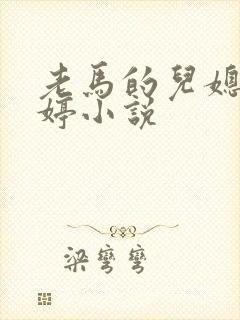 老馬的兒媳
婷小說
梁彎彎